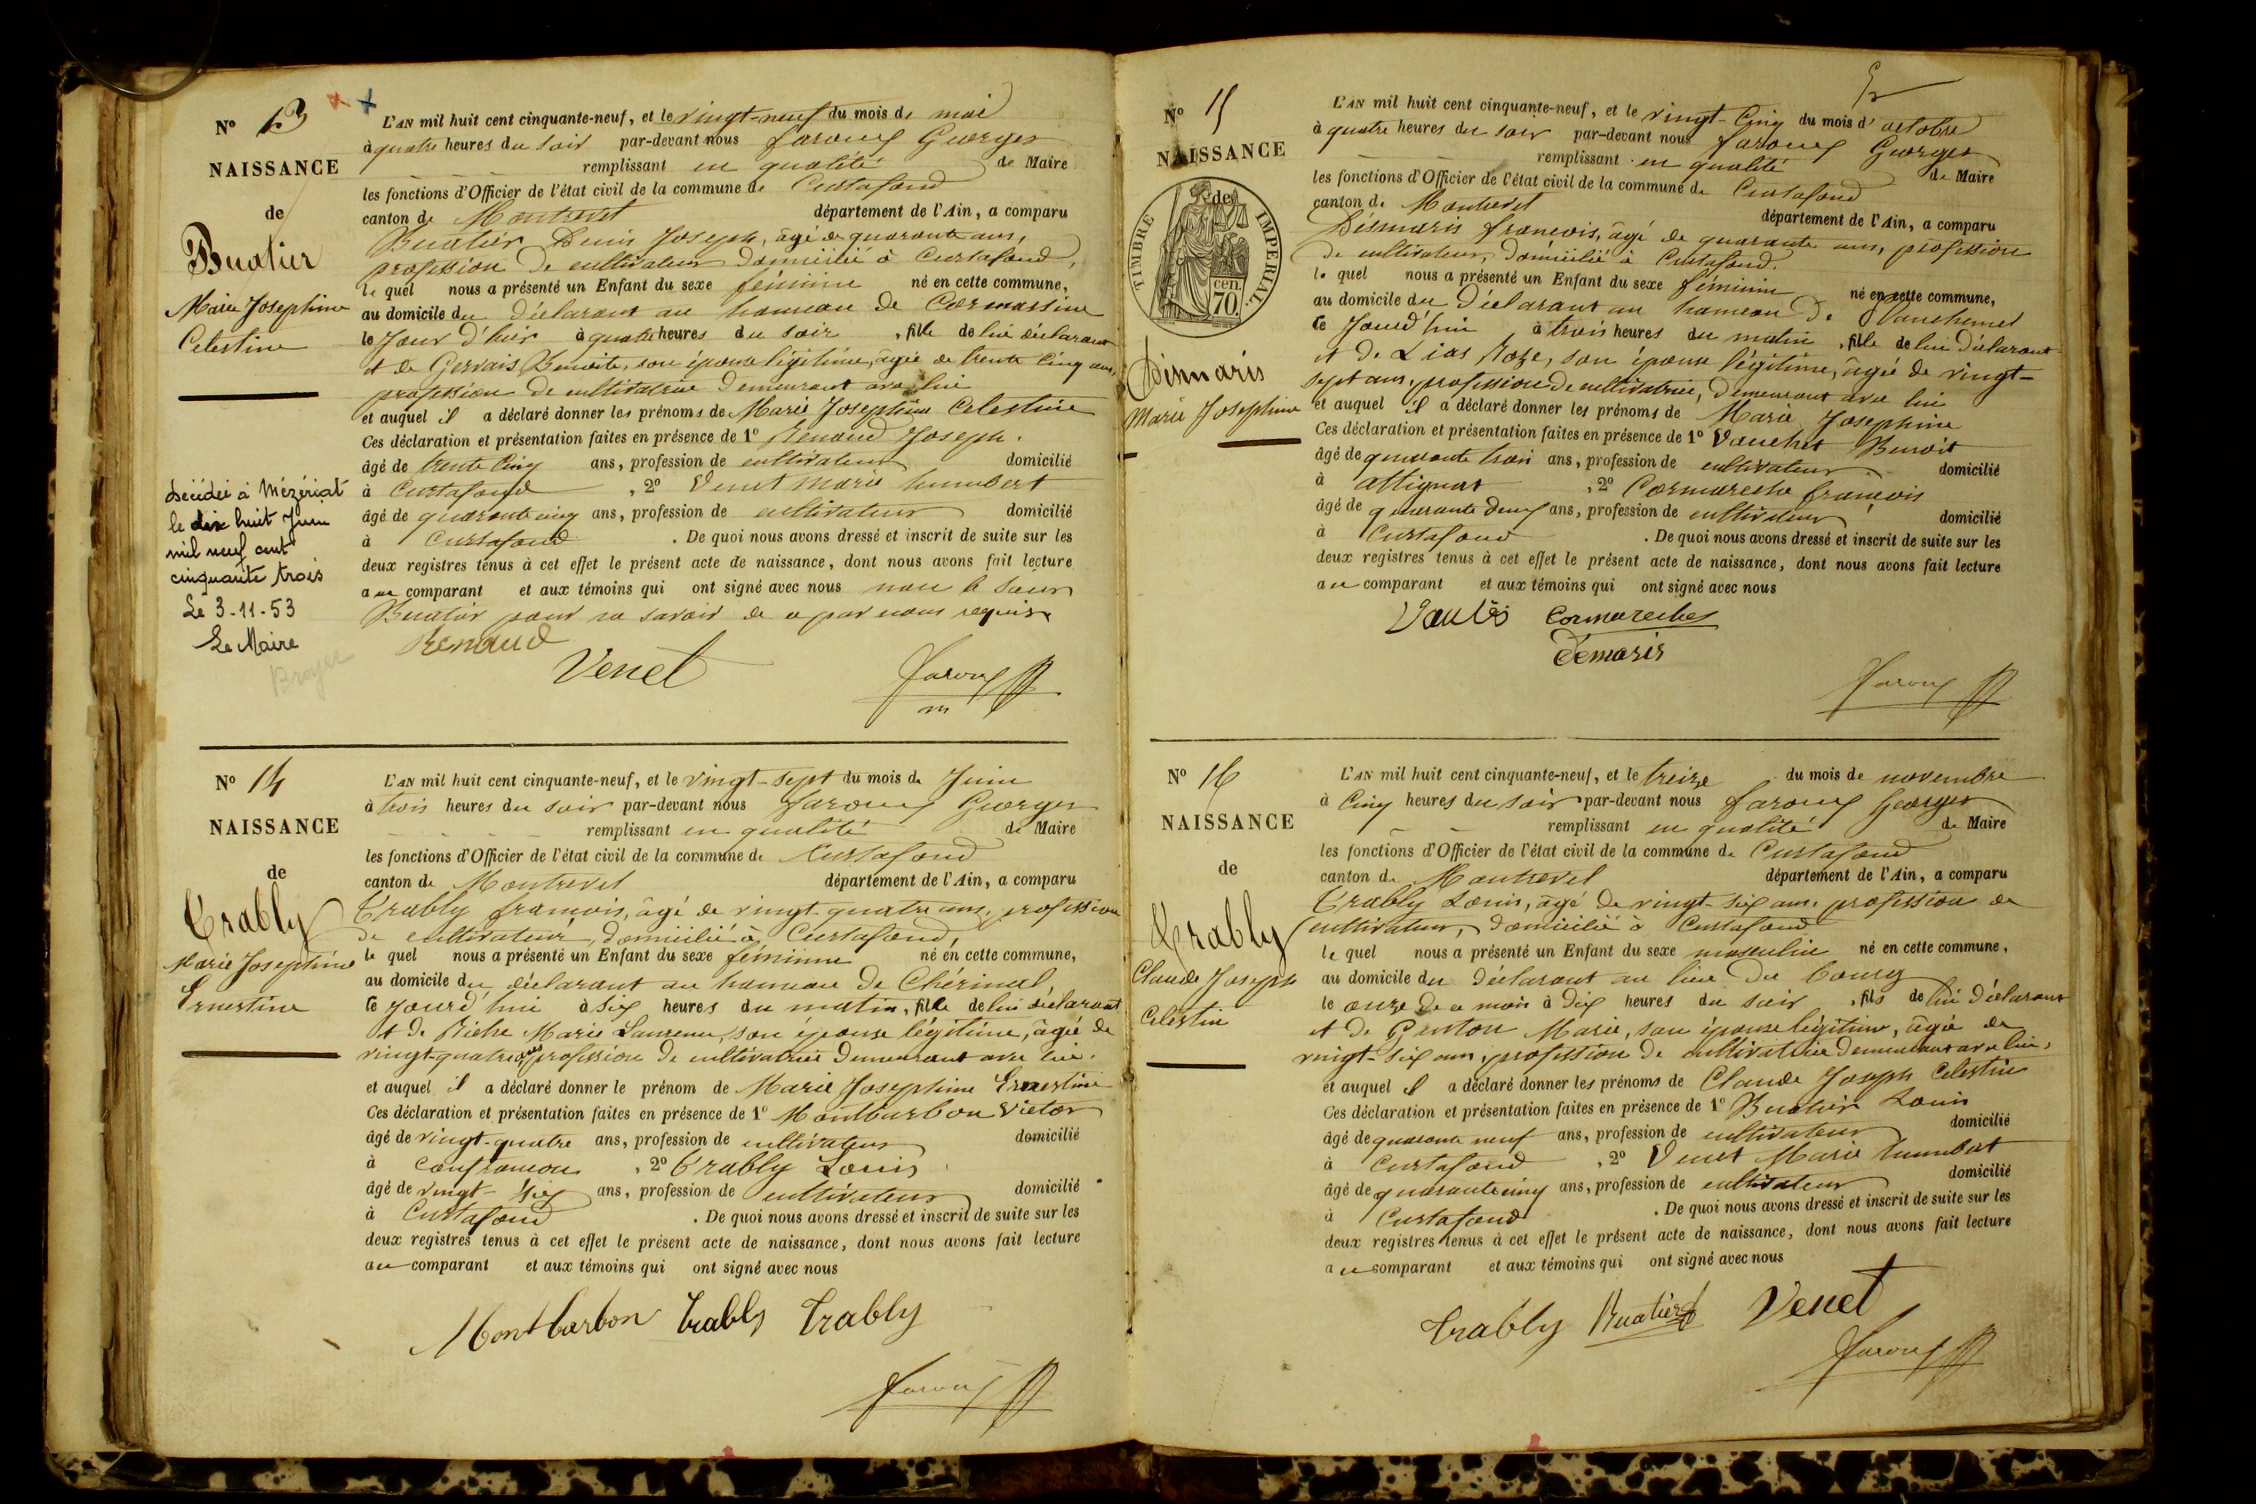 N° 13
NAISSANCE
de
Buatier
Marie Josephine
Celestine
décédée à Mézériat
le dix huit Juin
mil neuf cent
cinquante trois
Le 3-11-53
Le Maire
Broyer
L'AN mil huit cent cinquante-neuf, et le vingt-neuf du mois de mai
à quatre heures du soir par-devant nous Faroux Georges
remplissant en qualité de Maire
les fonctions d'Officier de l'état civil de la commune de Curtafond
canton de Montrevel département de l'Ain, a comparu
Buatier Denis Joseph, âgé de quarante ans,
profession de cultivateur domicilié à Curtafond,
le quel nous a présenté un Enfant du sexe féminin né en cette commune,
au domicile du déclarant au hameau de Cormassine
le Jour d'hier à quatre heures du soir, fille de lui déclarant
et de Gervais Benoite, son épouse légitime, âgée de trente cinq ans,
profession de cultivatrice demeurant avec lui
et auquel il a déclaré donner les prénoms de Marie Josephine Celestine
Ces déclaration et présentation faites en présence de 1° Renaud Joseph.
âgé de trente cinq ans, profession de cultivateur domicilié
à Curtafond, 2° Venet Marie humbert
âgé de quarante cinq ans, profession de cultivateur domicilié
à Curtafond. De quoi nous avons dressé et inscrit de suite sur les
deux registres tenus à cet effet le présent acte de naissance, dont nous avons fait lecture
au comparant et aux témoins qui ont signé avec nous non le sieur
Buatier pour ne savoir de ce par nous requis
Renaud
Venet
Faroux
m
N° 14
NAISSANCE
de
Trably
Marie Josephine
Ernestine
L'AN mil huit cent cinquante-neuf, et le vingt-sept du mois de Juin
à trois heures du soir par-devant nous Faroux Georges
remplissant en qualité de Maire
les fonctions d'Officier de l'état civil de la commune de Curtafond
canton de Montrevel département de l'Ain, a comparu
Trably francois, âgé de vingt-quatre ans, profession
de cultivateur, domicilié à Curtafond,
le quel nous a présenté un Enfant du sexe féminin né en cette commune,
au domicile du déclarant au hameau de Chérinal
ce jourd'hui à six heures du matin, fille de lui déclarant
et de Marie Laurence, son épouse légitime, âgée de
vingt-quatre ans profession de cultivatrice demeurant avec lui.
et auquel il a déclaré donner le prénom de Marie Josephine Ernestine
Ces déclaration et présentation faites en présence de 1° Montburbon Victor
âgé de vingt-quatre ans, profession de cultivateur domicilié
à Confrancon, 2° Trably Louis
âgé de vingt-six ans, profession de cultivateur domicilié
à Curtafond. De quoi nous avons dressé et inscrit de suite sur les
deux registres tenus à cet effet le présent acte de naissance, dont nous avons fait lecture
au comparant et aux témoins qui ont signé avec nous
Montburbon Trably Trably
Faroux
N° 15
NAISSANCE
de
TIMBRE IMPERIAL.
70. cen.
Désmaris
Marie Josephine
L'AN mil huit cent cinquante-neuf, et le vingt-cinq du mois d'octobre
à quatre heures du soir par-devant nous Faroux Georges
remplissant en qualité de Maire
les fonctions d'Officier de l'état civil de la commune de Curtafond
canton de Montrevel département de l'Ain, a comparu
Désmaris francois, âgé de quarante ans, profession
de cultivateur, domicilié à Curtafond.
le quel nous a présenté un Enfant du sexe féminin né en cette commune,
au domicile du déclarant au hameau de
ce Jourd'hui à trois heures du matin, fille de lui déclarant
et de Lias Roze, son épouse légitime, âgée de vingt-
sept ans, profession de cultivatrice, demeurant avec lui
et auquel il a déclaré donner les prénoms de Marie Josephine
Ces déclaration et présentation faites en présence de 1° Vauchet Benoit
âgé de quarante trois ans, profession de cultivateur domicilié
à attignat, 2° Cormareche francois
âgé de quarante deux ans, profession de cultivateur domicilié
à Curtafond. De quoi nous avons dressé et inscrit de suite sur les
deux registres tenus à cet effet le présent acte de naissance, dont nous avons fait lecture
au comparant et aux témoins qui ont signé avec nous
Cormareches
démaris
Faroux
N° 16
NAISSANCE
de
Trably
Claude Joseph
Celestin
L'AN mil huit cent cinquante-neuf, et le treize du mois de novembre
à cinq heures du soir par-devant nous Faroux Georges
remplissant en qualité de Maire
les fonctions d'Officier de l'état civil de la commune de Curtafond
canton de Montrevel département de l'Ain, a comparu
Trably Louis, âgé de vingt-six ans, profession de
cultivateur, domicilié à Curtafond
le quel nous a présenté un Enfant du sexe masculin né en cette commune,
au domicile du déclarant au lieu du bourg
le onze de ce mois à dix heures du soir, fils de lui déclarant
et de Genton Marie, son épouse légitime, âgée de
vingt-six ans, profession de cultivatrice demeurant avec lui,
et auquel il a déclaré donner les prénoms de Claude Joseph Celestin
Ces déclaration et présentation faites en présence de 1° Buatier Louis
âgé de quarante neuf ans, profession de cultivateur domicilié
à Curtafond, 2° Venet Marie humbert
âgé de quarante cinq ans, profession de cultivateur domicilié
à Curtafond. De quoi nous avons dressé et inscrit de suite sur les
deux registres tenus à cet effet le présent acte de naissance, dont nous avons fait lecture
au comparant et aux témoins qui ont signé avec nous
Trably Buatier Venet
Faroux